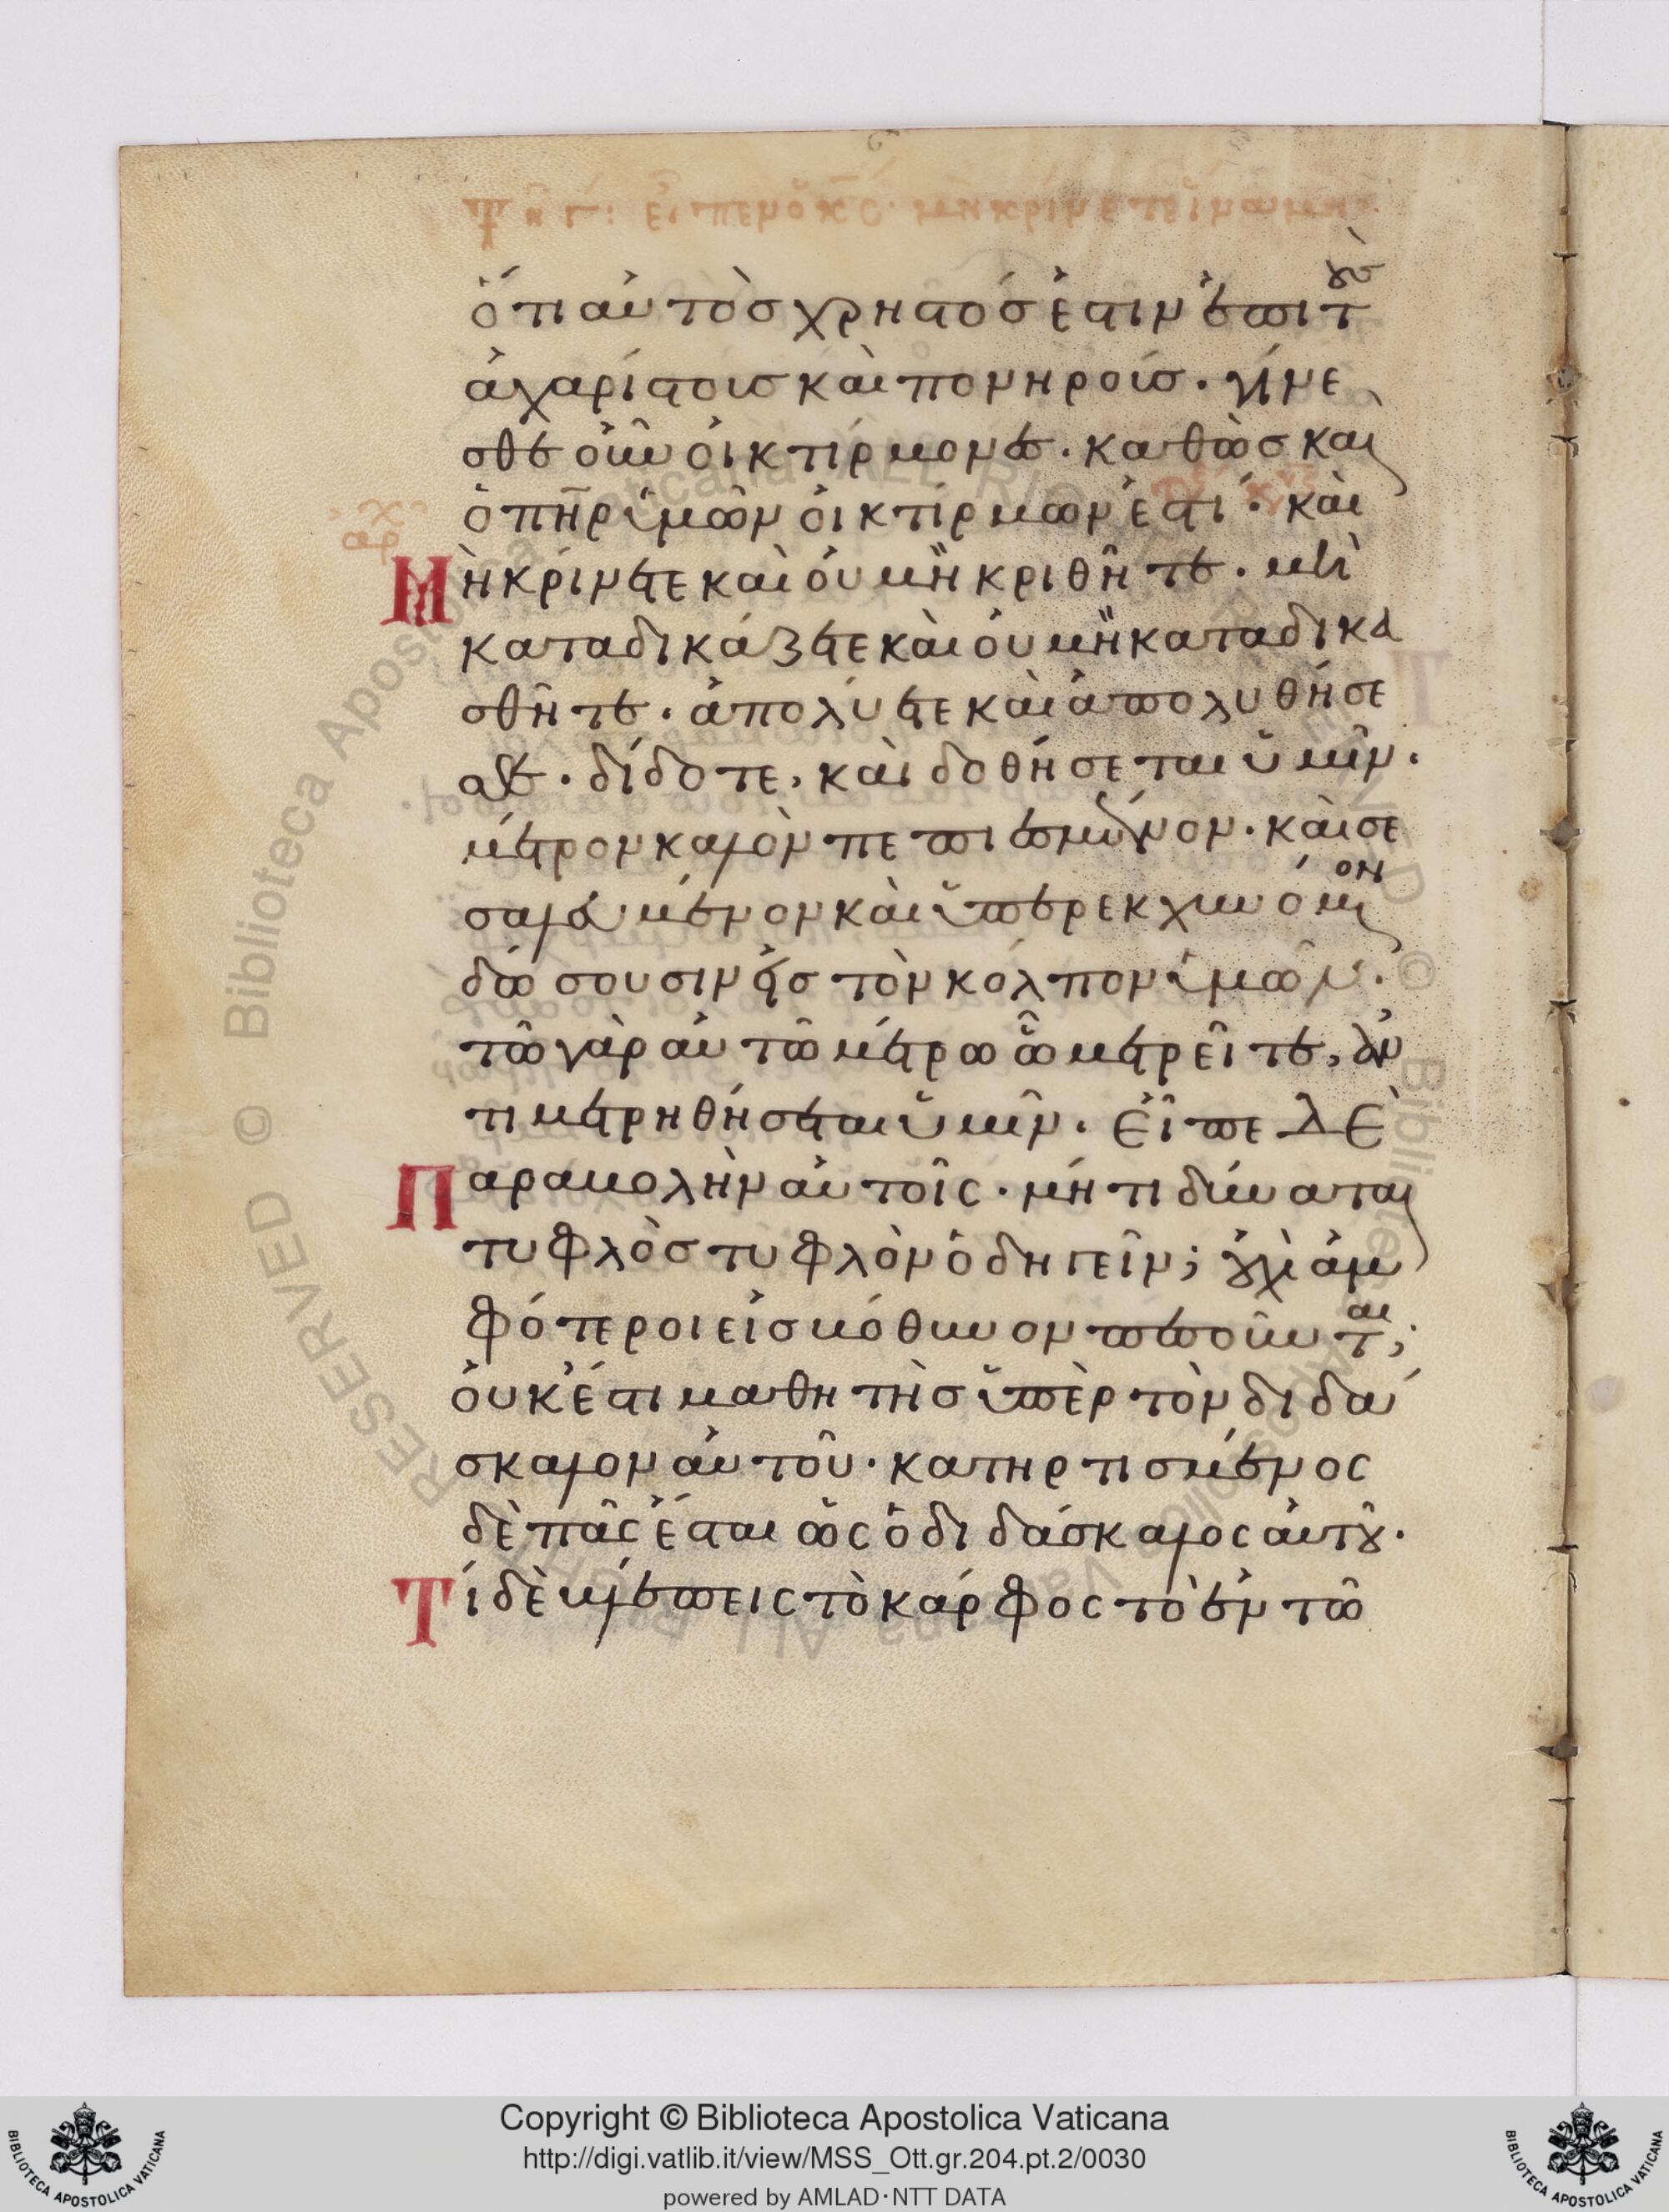 ὅτι αὐτὸσ χρηστόσ ἐστιν ἐπὶ τοὺσ
ἀχαρίστουσ καὶ πονηρούσ. γίνε
σθε οὖν οἰκτίρμονες. καθὼσ καὶ
ὁ πηρ ὑμῶν οἰκτίρμων ἐστί. καὶ
Μὴ κρίνετε καὶ οὐ μὴ κριθῆτε. μὴ
καταδικάζετε καὶ οὐ μὴ καταδικα
σθῆτε. ἀπολύετε καὶ ἀπολυθήσε
σθε. δίδοτε, καὶ δοθήσεται ὑμῖν.
μέτρον καλὸν πεπιεσμένον. καὶ σε
σαλευμένον καὶ ὑπερεκχυνόμενον
δώσουσιν εἰσ τὸν κόλπον ὑμῶν.
τῶ γὰρ αὐτῶ μέτρω ὧ μετρεῖτε, ἀν
τιμετρηθήσεται ὑμῖν. Εἶπε δὲ
Παραβολὴν αὐτοῖς. μήτι δύναται
τυφλὸσ τυφλὸν ὁδηγεῖν; οὐχὶ ἀμ
φότεροι εἰσ βόθυνον πεσοῦνται;
οὐκ ἔστι μαθητὴσ ὑπὲρ τὸν διδά
σκαλον αὐτοῦ. κατηρτισμένος
δὲ πᾶς ἔσται ὡς ὁ διδάσκαλος αὐτοῦ.
Τί δὲ βλέπεις τὸ κάρφος τὸ ἐν τῶ
Copyright © Biblioteca Apostolica Vaticana
http://digi.vatlib.it/view/MSS_Ott.gr.204.pt.2/0030
powered by AMLAD·NTT DATA
BIBLIOTECA APOSTOLICA VATICANA
BIBLIOTECA APOSTOLICA VATICANA